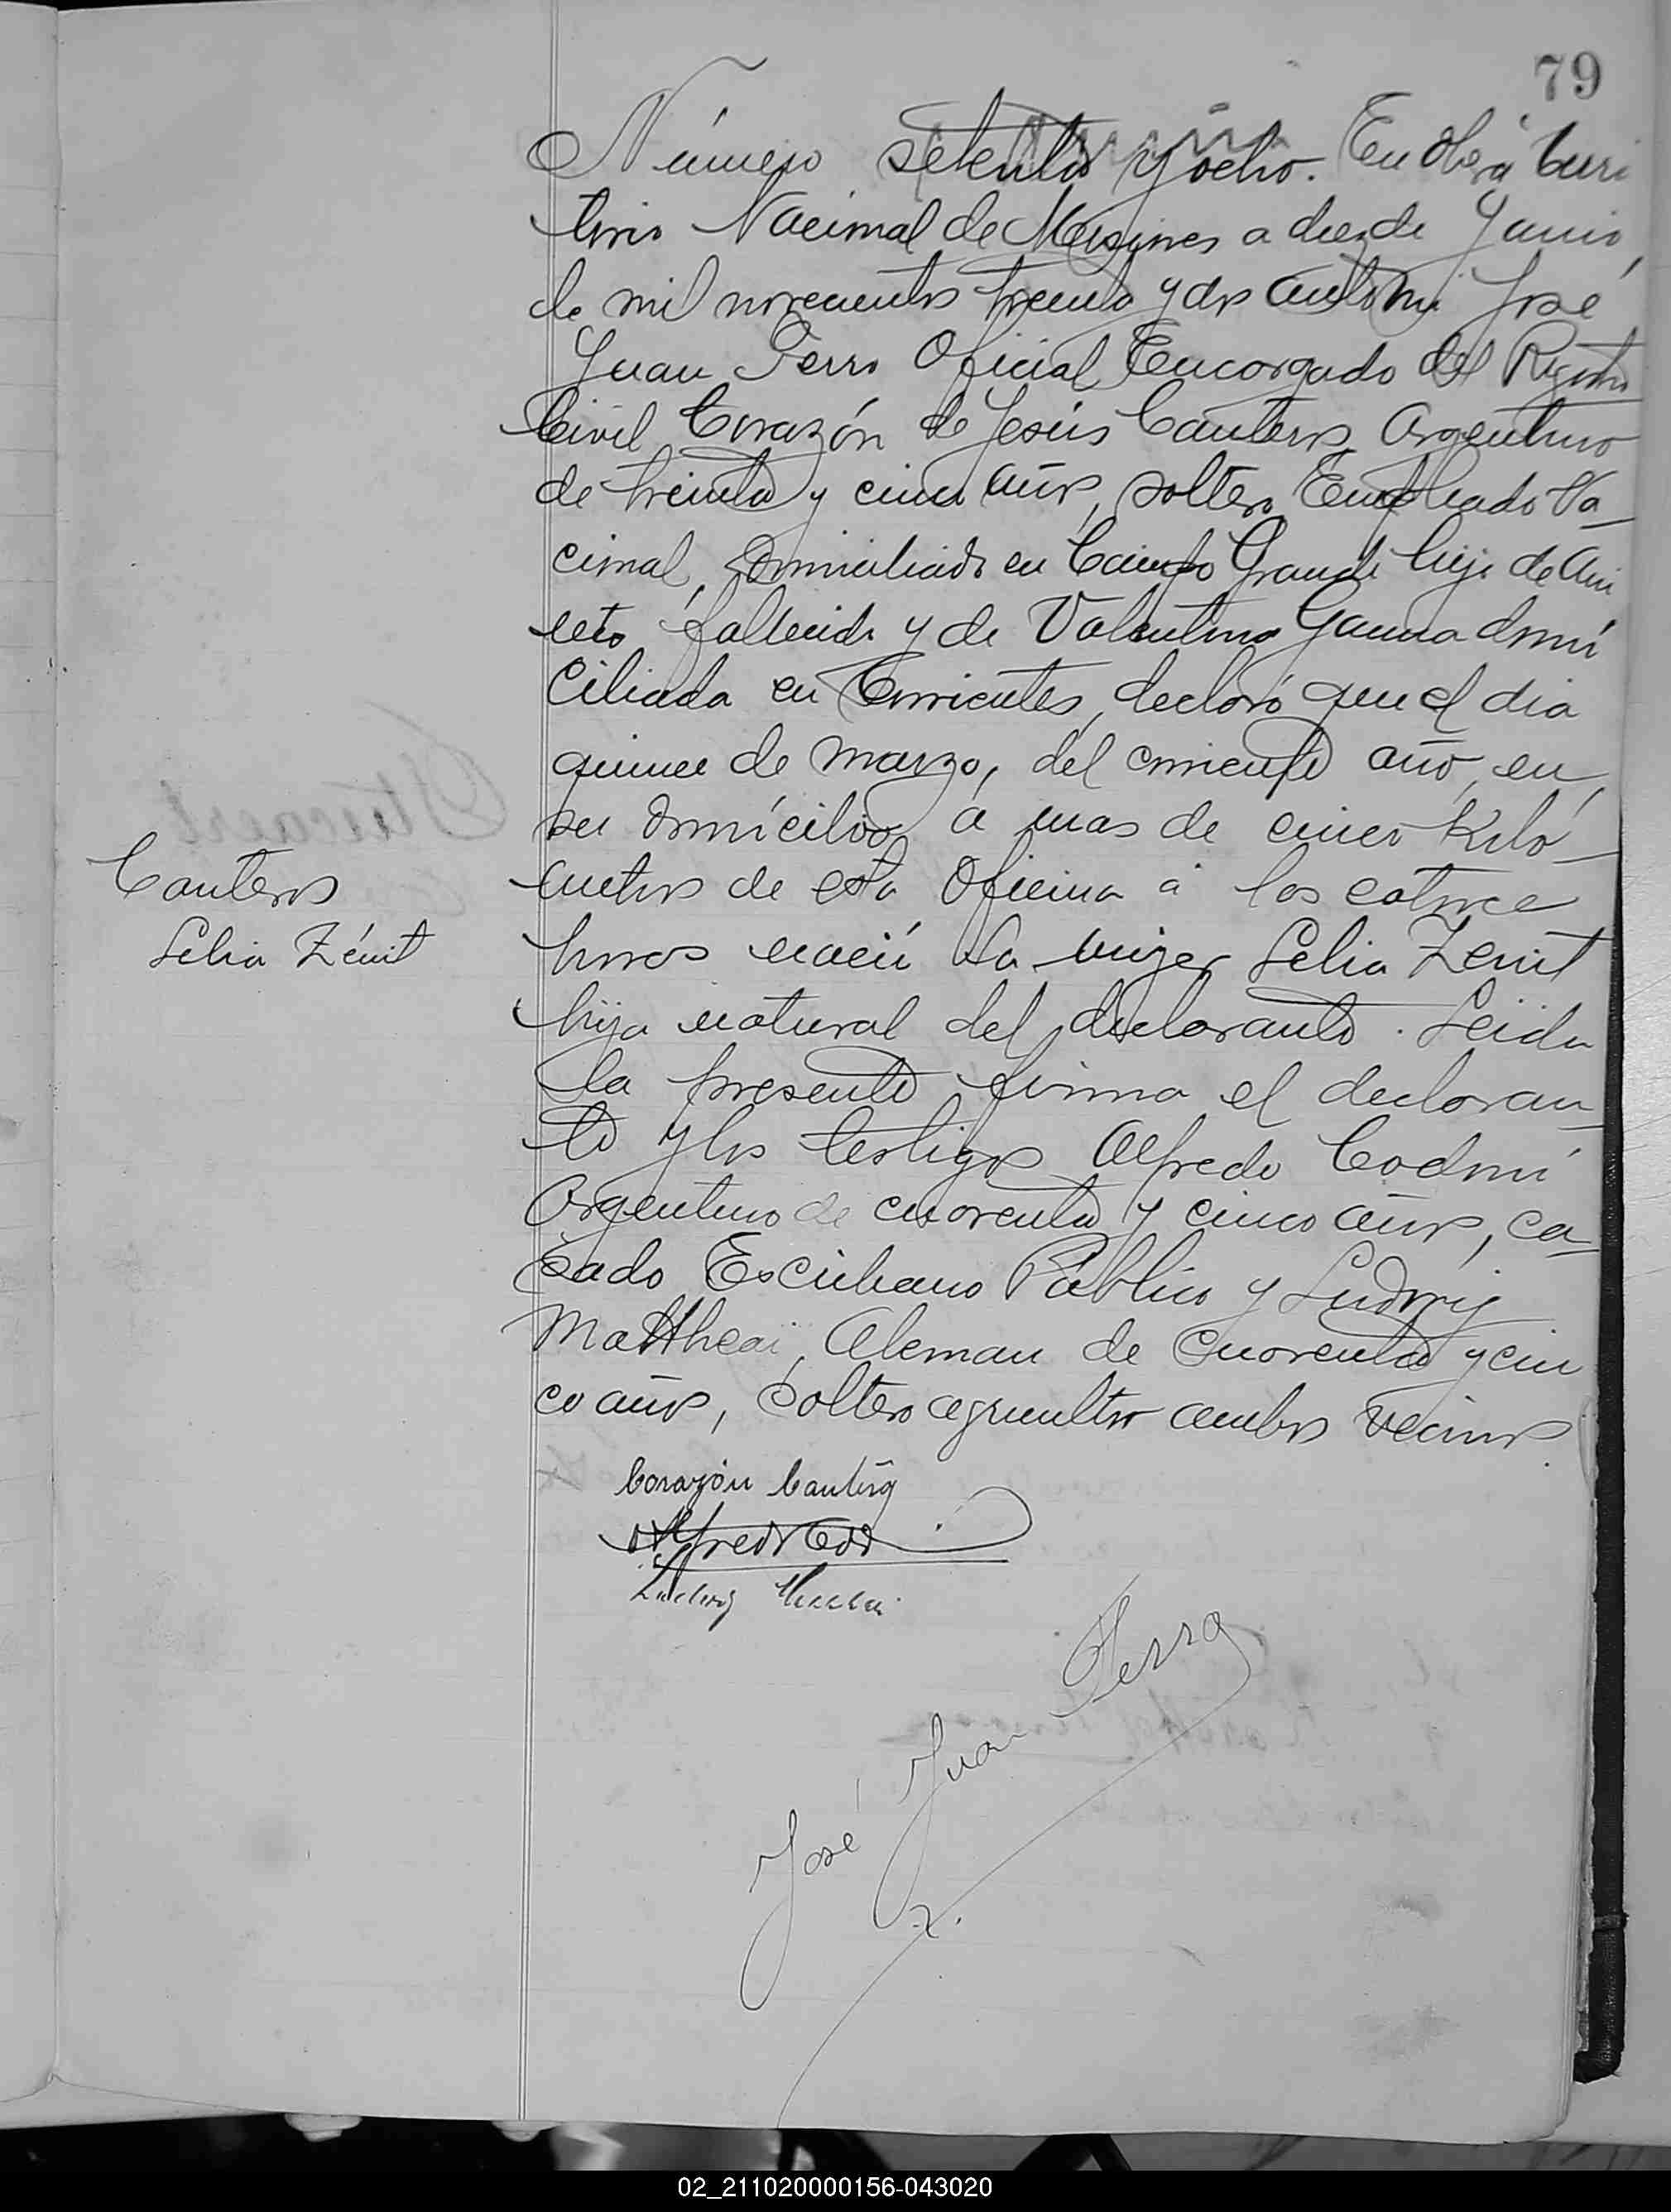 79
Número setenta y ocho. En Oberá Terri
torio Nacional de Misiones a diez de Junio,
de mil novecientos treinta y dos ante mi José
Juan Ferro Oficial Encargado del Registro
Civil, Corazón de Jesús Canteros, Argentino
de treinta y cinco años, soltero, Empleado Na-
cional, domiciliado en Campo Grande hijo de Ani
ceto fallecido y de Valentina Gauna domi
ciliada en Corrientes, declaró que el dia
quince de marzo, del corriente año, en,
su domicilio, á mas de cinco Kiló-
metros de esta Oficina á las catorce
Canteros
horas nació la mujer Lelia Zenit
Lelia Zénit
hija natural del declarante. Leida
la presente firma el declaran-
te y los testigos Alfredo
Argentino de cuarenta y cinco años, ca-
sado, Escribano Público y Ludwig
Mattheai, Aleman de cuarenta y cin
co años, soltero agricultor ambos vecinos.
Corazón Canteros
Ludwig
José Juan Ferro
02_211020000156-043020